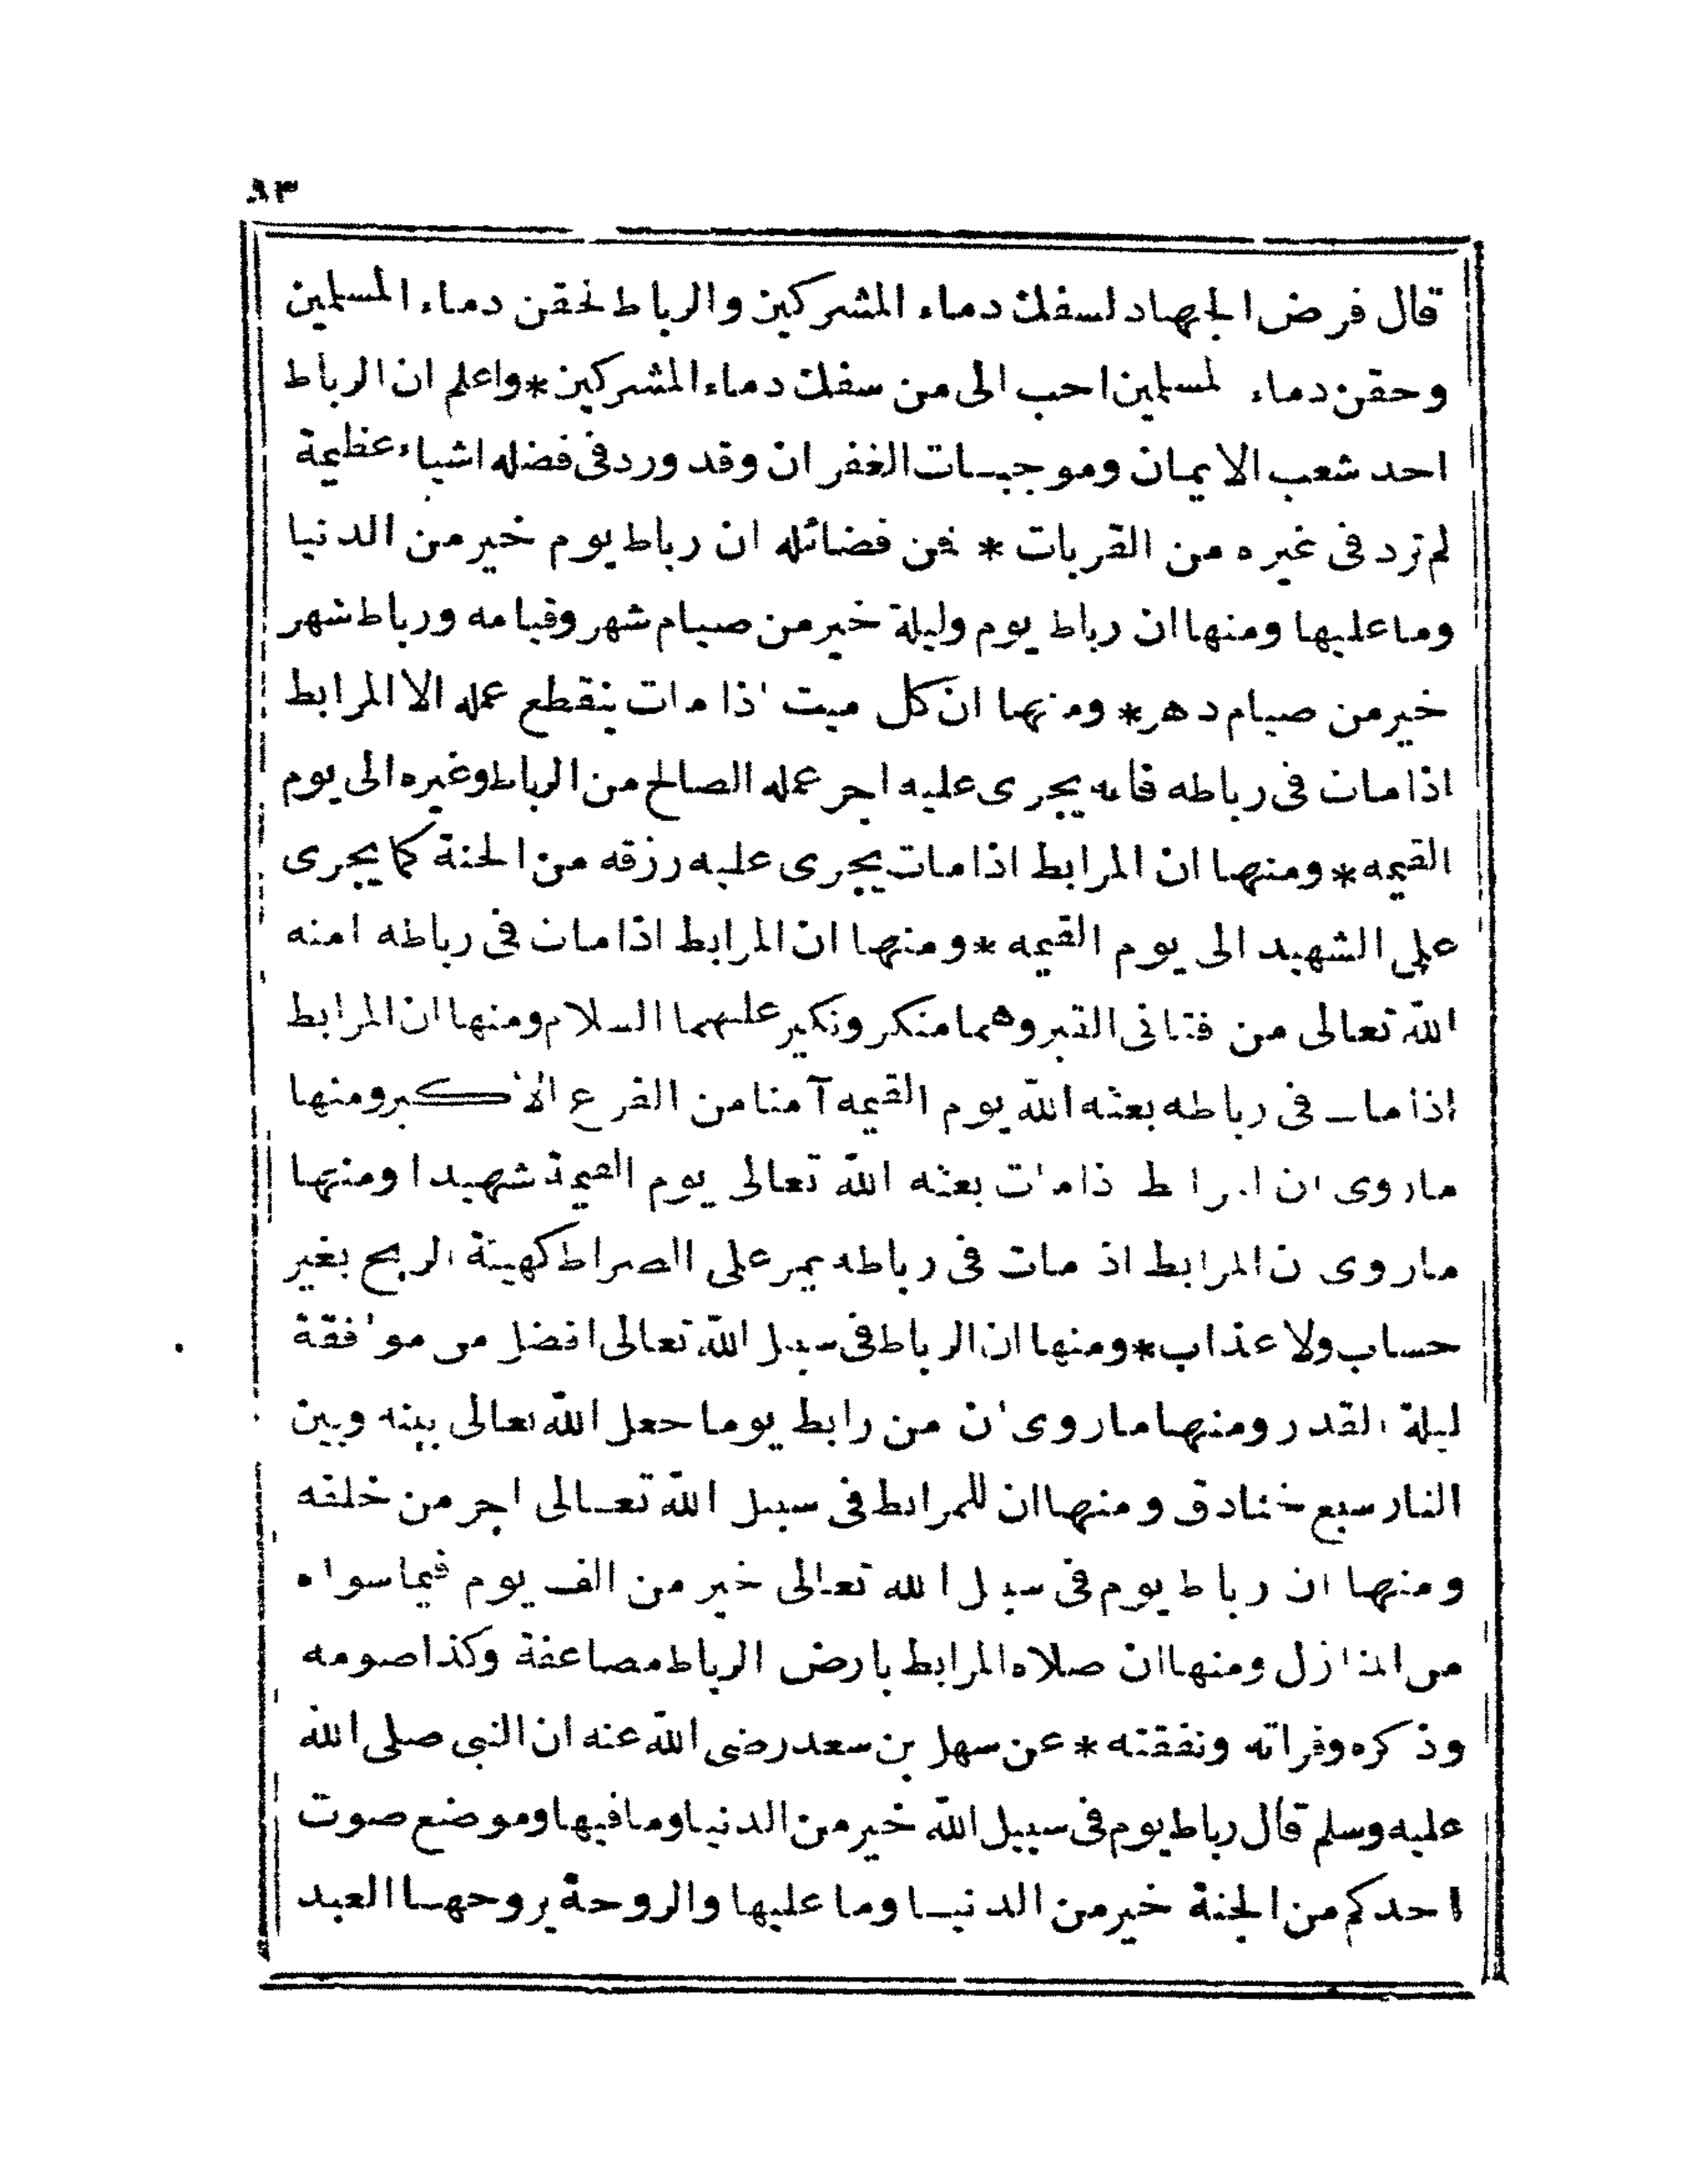 ٩٣
قال فرض الجهاد لسفك دماء المشركين والرباط لحقن دماء المسلمين
وحقن دماء المسلمين احب الى من سفك دماء المشركين * واعلم ان الرباط
احد شعب الايمان وموجبات الغفران وقد ورد فى فضله اشياء عظيمة
لم ترد فى غيره من القربات * فمن فضائله ان رباط يوم خير من الدنيا
وما عليها ومنها ان رباط يوم وليلة خير من صيام شهر وقيامه ورباط شهر
خير من صيام دهر * ومنها ان كل ميت اذا مات ينقطع عمله الا المرابط
اذا مات فى رباطه فانه يجرى عليه اجر عمله الصالح من الرباط وغيره الى يوم
القيمه * ومنها ان المرابط اذا مات يجرى عليه رزقه من الجنة كما يجرى
على الشهيد الى يوم القيمه * ومنها ان المرابط اذا مات فى رباطه امنه
الله تعالى من فتانى القبر وهما منكر ونكير عليهما السلام ومنها ان المرابط
اذا مات فى رباطه بعثه الله يوم القيمه آمنا من الفزع الاكبر ومنها
ماروى ان المرابط اذا مات بعثه الله تعالى يوم القيمة شهيدا ومنها
ماروى ان المرابط اذا مات فى رباطه يمر على الصراط كهيئة الريح بغير
حساب ولا عذاب * ومنها ان الرباط فى سبيل الله تعالى افضل من موافقة
ليلة القدر ومنها ماروى ان من رابط يوما جعل الله تعالى بينه وبين
النار سبع خنادق ومنها ان للمرابط فى سبيل الله تعالى اجر من خلفه
ومنها ان رباط يوم فى سبيل الله تعالى خير من الف يوم فيما سواه
من المنازل ومنها ان صلاه المرابط بارض الرباط مضاعفة وكذا صومه
وذكره وقراته ونفقته * عن سهل بن سعد رضى الله عنه ان النبى صلى الله
عليه وسلم قال رباط يوم فى سبيل الله خير من الدنيا وما فيها وموضع صوت
احدكم من الجنة خير من الدنيا وما عليها والروحة يروحها العبد